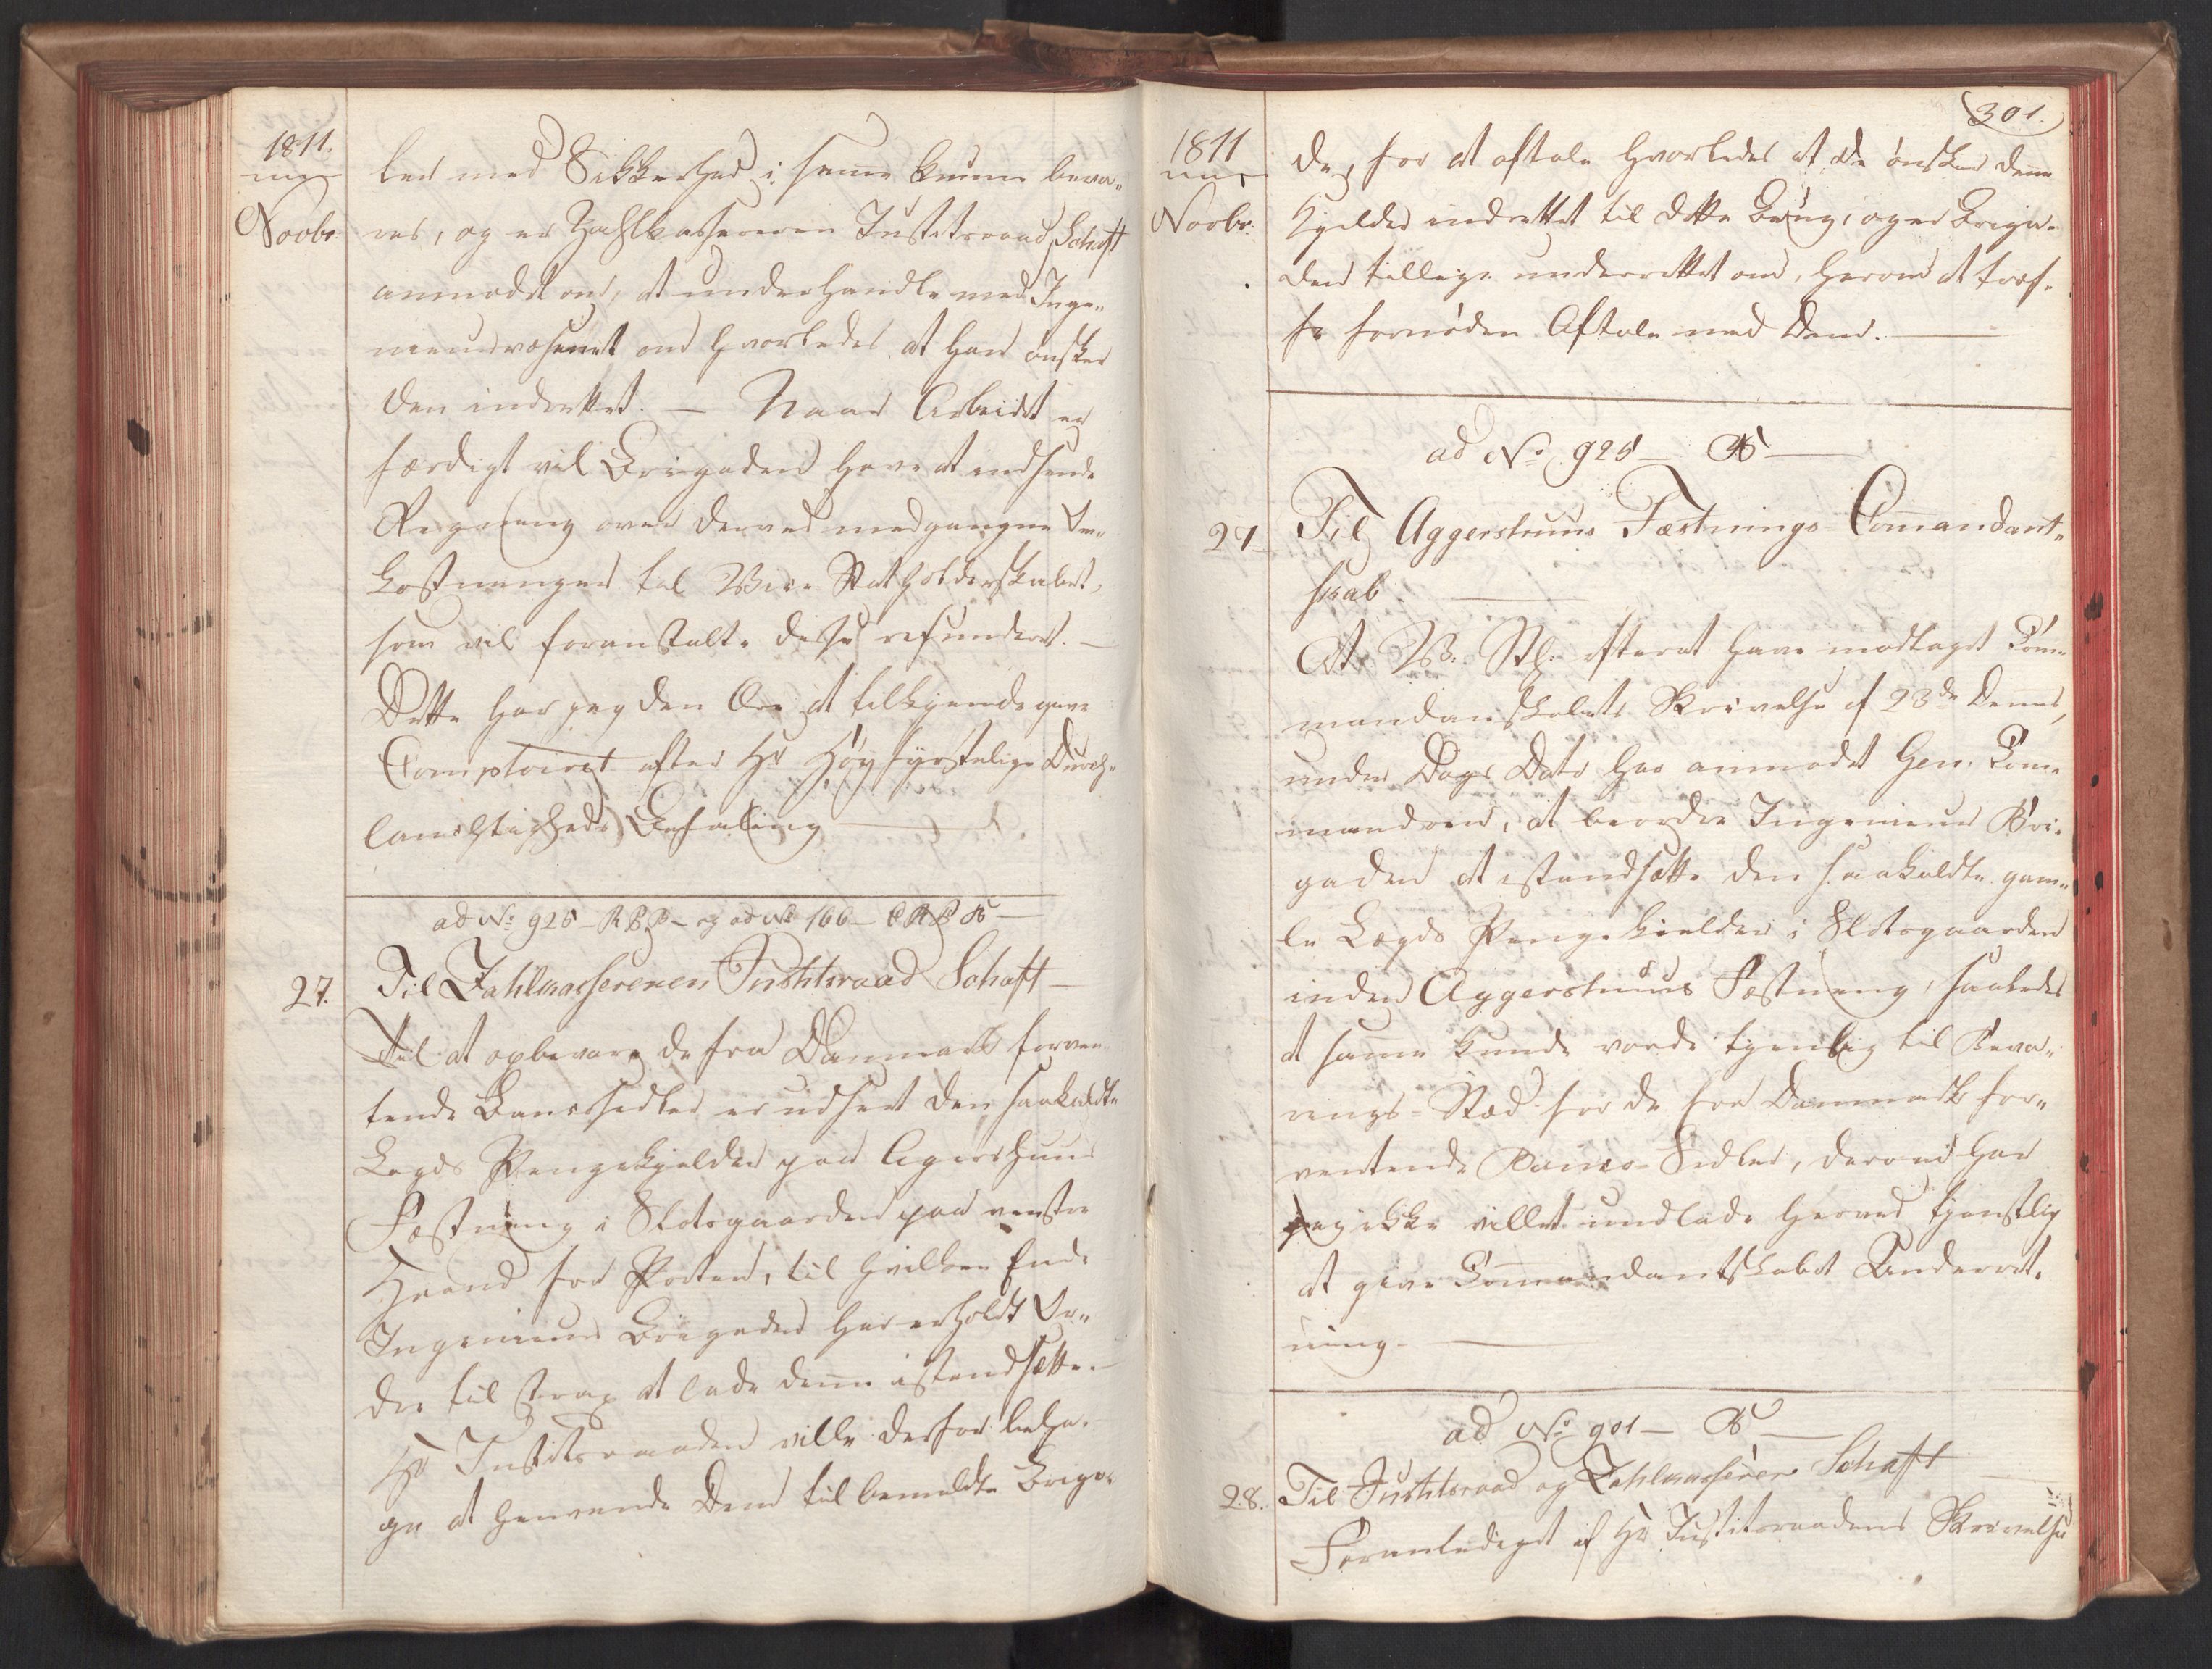 1811.
Novbr.
ler med Sikkerhed i samme kunne beva-
res, og er Zahlkasserer Justitsraad Schaft
anmodet om, at underhandle med Inge-
nieurvæsenet om hvorledes at han ønsker
den indrettet. — Naar Arbeidet er
færdigt vil Brigaden have at indsende
Regning over derved medgangne Om-
kostninger til Vice Statholderskabet,
som vil foranstalte disse refunderet. —
Dette har jeg den Ære at tilkjendegive
Comptoiret efter Hs Høyfyrstelige Durch-
lauchtigheds Befaling —
ad No. 925 — R B B — og ad No 166 —
27. Til Zahlkassereren Justitsraad Schaft —
Til at opbevare de fra Danmark forven-
tende Bancosedler er udseet den saakaldte
Lægds Pengekjelder paa Agershuus
Fæstning i Slotsgaarden paa venstre
Haand fra Porten, til hvilken Ende
Ingenieur Brigaden har erholdt Or-
dre til strax at lade denne istandsætte. —
Hr Justitsraaden ville derfor beha-
ge at henvende Dem til bemeldte Briga-
301.
1811
Novbr.
de, for at aftale hvorledes at de ønsker denne
Kjelder indrettet til dette Brug, og er Briga-
den tillige underrettet om, herom at træf-
fe fornøden Aftale med Dem. —
ad No. 925 —
27 Til Aggershuus Fæstnings Commandant-
skab —
At V. Sth. efterat have modtaget Com-
mandantskabets Skrivelse af 23de dennes,
under Dags Dato har anmodet Gen. Com-
mandoen, at beordre Ingenieur Bri-
gaden at istandsætte den saakaldte gam-
le Lægds Penge Kielder i Slotsgaarden
inden Aggershuus Fæstning, saaledes
at samme kunde vorde tjenlig til Beva-
rings-Stæd for de fra Danmark for-
ventende Banco-Sedler, derom har
jeg ikke villet undlade herved tjenstlig
at give Commandantskabet Underret-
ning. —
ad No. 901 —
28. Til Justitsraad og Zahlkasserer Schaft —
Foranlediget af Hr Justitsraadens Skrivelse